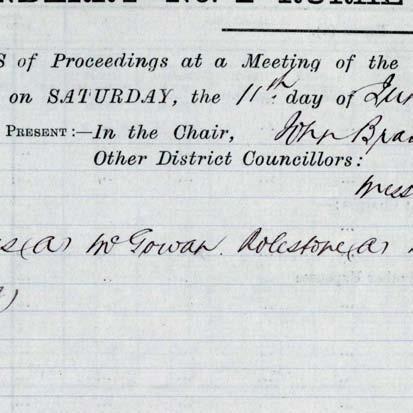 NDERRY NO. 2 RURAL
S of Proceedings at a Meeting of the
on SATURDAY, the 11th day of Jun
PRESENT:—In the Chair, John Bra
Other District Councillors:
Mess
s (a) McGowan Rolestone (a)
)